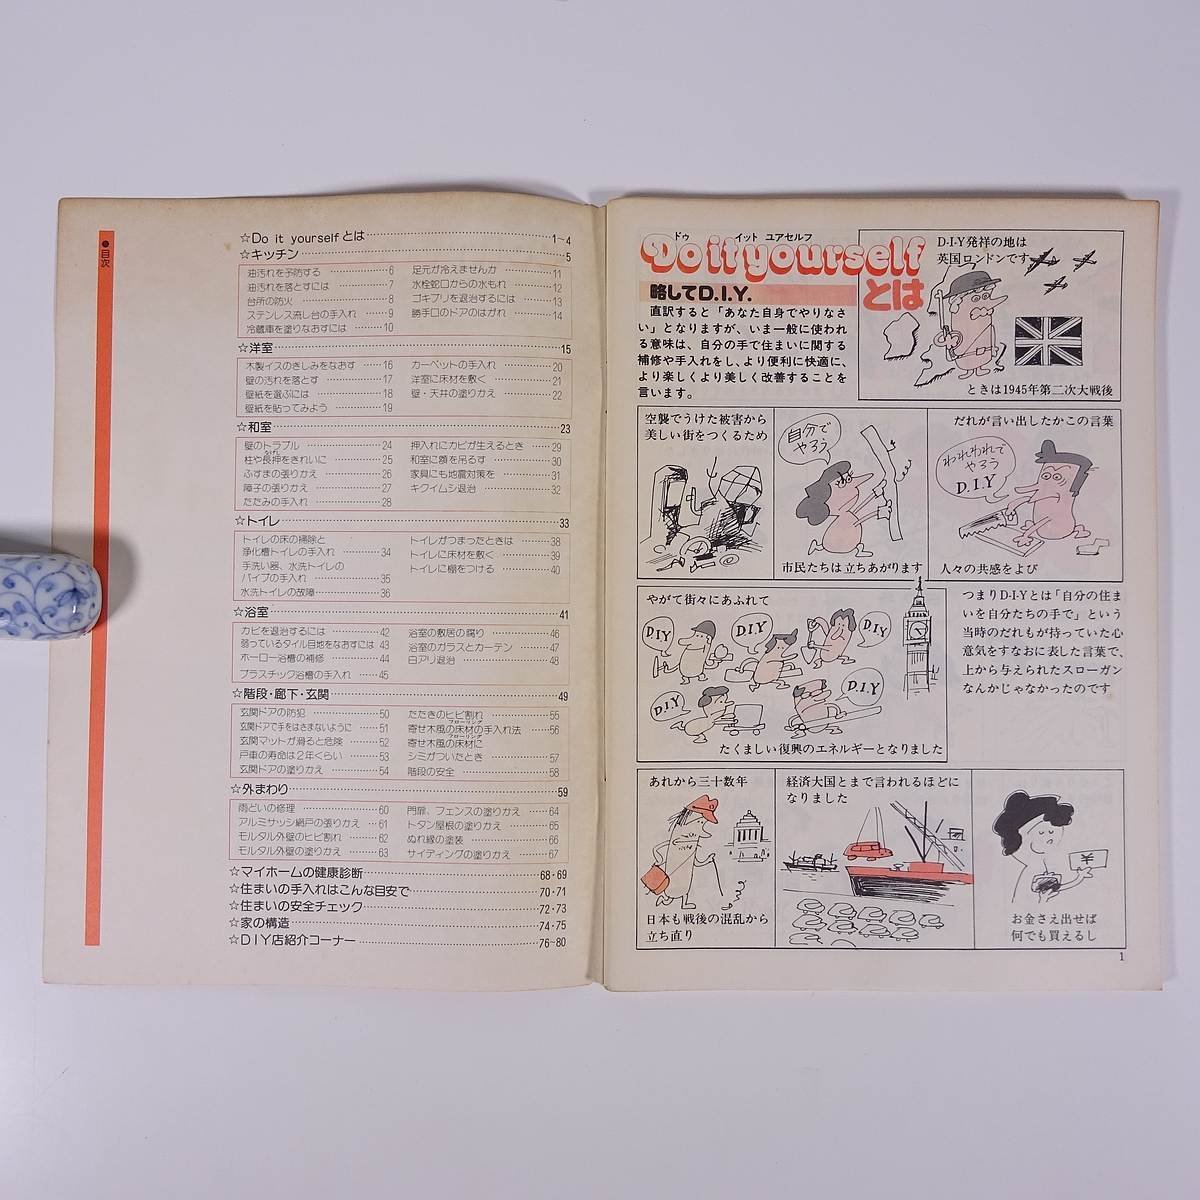 ●目次
☆Do it yourselfとは……1~4
☆キッチン……5
油汚れを予防する……6
油汚れを落とすには……7
台所の防火……8
ステンレス流し台の手入れ……9
冷蔵庫を塗りなおすには……10
足元が冷えませんか……11
水栓蛇口からの水もれ……12
ゴキブリを退治するには……13
勝手口のドアのはがれ……14
☆洋室……15
木製イスのきしみをなおす……16
壁の汚れを落とす……17
壁紙を選ぶには……18
壁紙を貼ってみよう……19
カーペットの手入れ……20
洋室に床材を敷く……21
壁・天井の塗りかえ……22
☆和室……23
壁のトラブル……24
柱や長押をきれいに……25
ふすまの張りかえ……26
障子の張りかえ……27
たたみの手入れ……28
押入れにカビが生えるとき……29
和室に額を吊るす……30
家具にも地震対策を……31
キクイムシ退治……32
☆トイレ……33
トイレの床の掃除と
浄化槽トイレの手入れ……34
手洗い器、水洗トイレの
パイプの手入れ……35
水洗トイレの故障……36
トイレがつまったときは……38
トイレに床材を敷く……39
トイレに棚をつける……40
☆浴室……41
カビを退治するには……42
弱っているタイル目地をなおすには 43
ホーロー浴槽の補修……44
プラスチック浴槽の手入れ……45
浴室の敷居の腐り……46
浴室のガラスとカーテン……47
白アリ退治……48
☆階段・廊下・玄関……49
玄関ドアの防犯……50
玄関ドアで手をはさまないように……51
玄関マットが滑ると危険……52
戸車の寿命は2年くらい……53
玄関ドアの塗りかえ……54
たたきのヒビ割れ……55
フローリング
寄せ木風の床材の手入れ法……56
フローリング
寄せ木風の床材に
シミがついたとき……57
階段の安全……58
☆外まわり……59
雨どいの修理……60
アルミサッシ網戸の張りかえ……61
モルタル外壁のヒビ割れ……62
モルタル外壁の塗りかえ……63
門扉、フェンスの塗りかえ……64
トタン屋根の塗りかえ……65
ぬれ縁の塗装……66
サイディングの塗りかえ……67
☆マイホームの健康診断……68・69
☆住まいの手入れはこんな目安で……70・71
☆住まいの安全チェック……72・73
☆家の構造……74・75
☆DIY店紹介コーナー……76~80
ドゥ イット ユアセルフ
Do it yourself
とは
略してD.I.Y.
直訳すると「あなた自身でやりなさ
い」となりますが、いま一般に使われ
る意味は、自分の手で住まいに関する
補修や手入れをし、より便利に快適に、
より楽しくより美しく改善することを
言います。
D・I・Y発祥の地は
英国ロンドンです
ときは1945年第二次大戦後
空襲でうけた被害から
美しい街をつくるため
自分で
やろう
市民たちは立ちあがります
だれが言い出したかこの言葉
われわれで
やろう
D.I.Y
人々の共感をよび
やがて街々にあふれて
DIY
D.I.Y
DIY
DIY
D.I.Y
たくましい復興のエネルギーとなりました
つまりD・I・Yとは「自分の住ま
いを自分たちの手で」という
当時のだれもが持っていた心
意気をすなおに表した言葉で、
上から与えられたスローガン
なんかじゃなかったのです
あれから三十数年
日本も戦後の混乱から
立ち直り
経済大国とまで言われるほどに
なりました
¥
お金さえ出せば
何でも買えるし
1